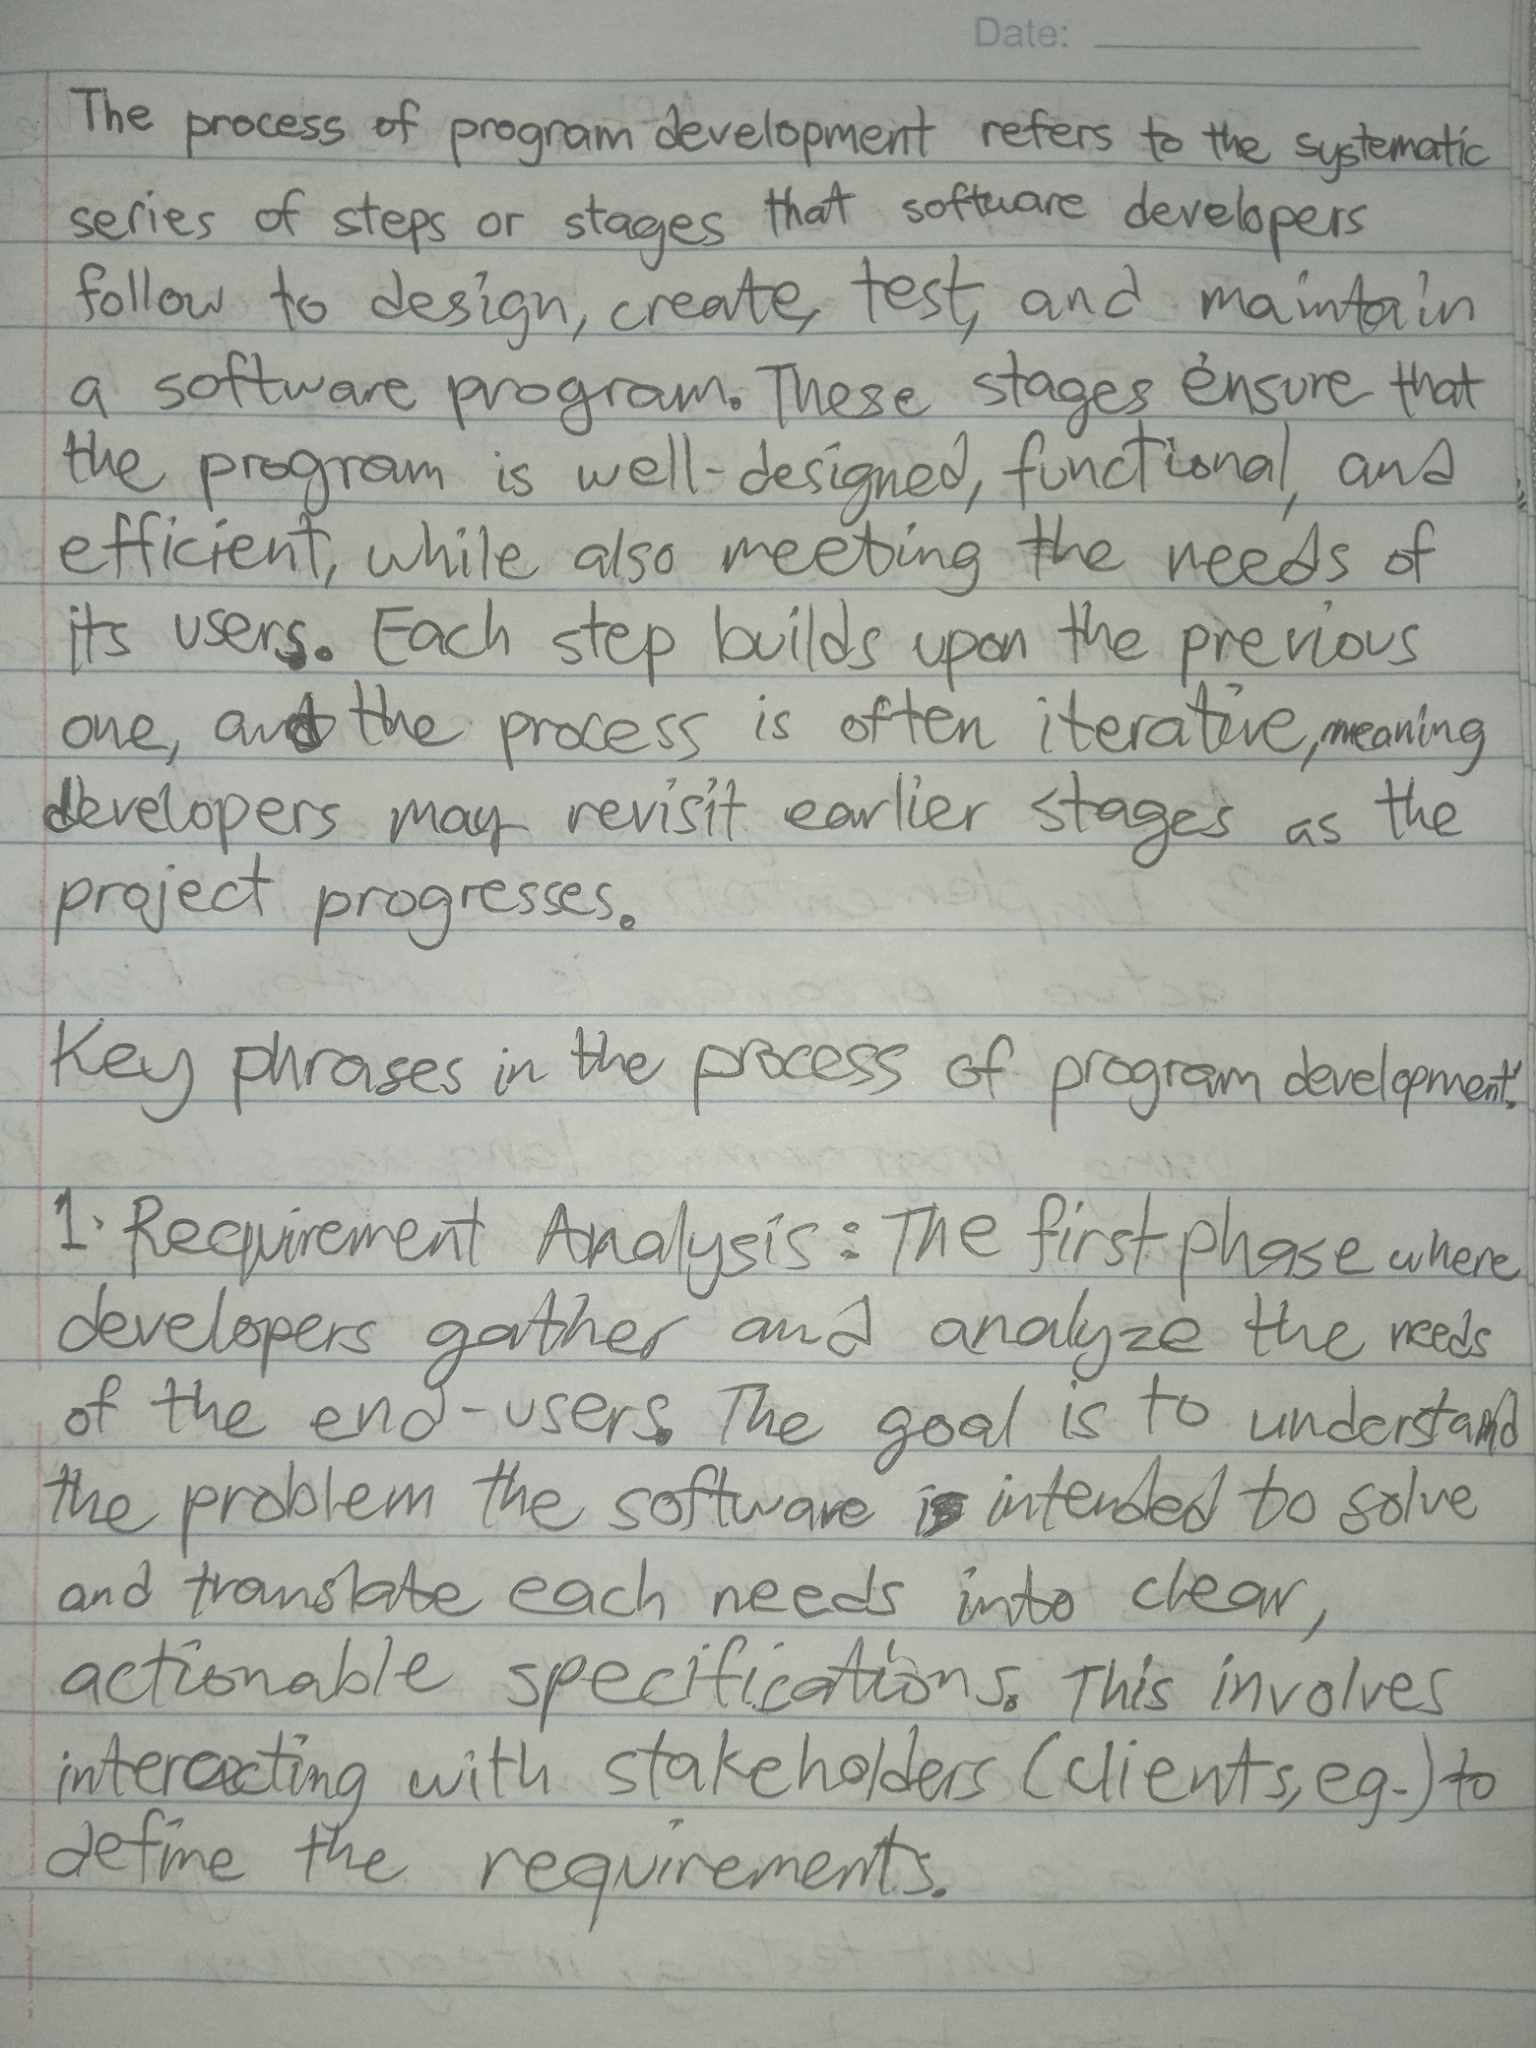 Date:
The process of program development refers to the systematic
series of steps or stages that software developers
follow to design, create, test, and maintain
a software program. These stages ensure that
the program is well-designed, functional, and
efficient, while also meeting the needs of
its users. Each step builds upon the previous
one, and the process is often iterative, meaning
developers may revisit earlier stages as the
project progresses.
Key phrases in the process of program development.
1. Requirement Analysis: The first phase where
developers gather and analyze the needs
of the end-users. The goal is to understand
the problem the software is intended to solve
and translate each needs into clear,
actionable specifications. This involves
interacting with stakeholders (clients, eg.) to
define the requirements.